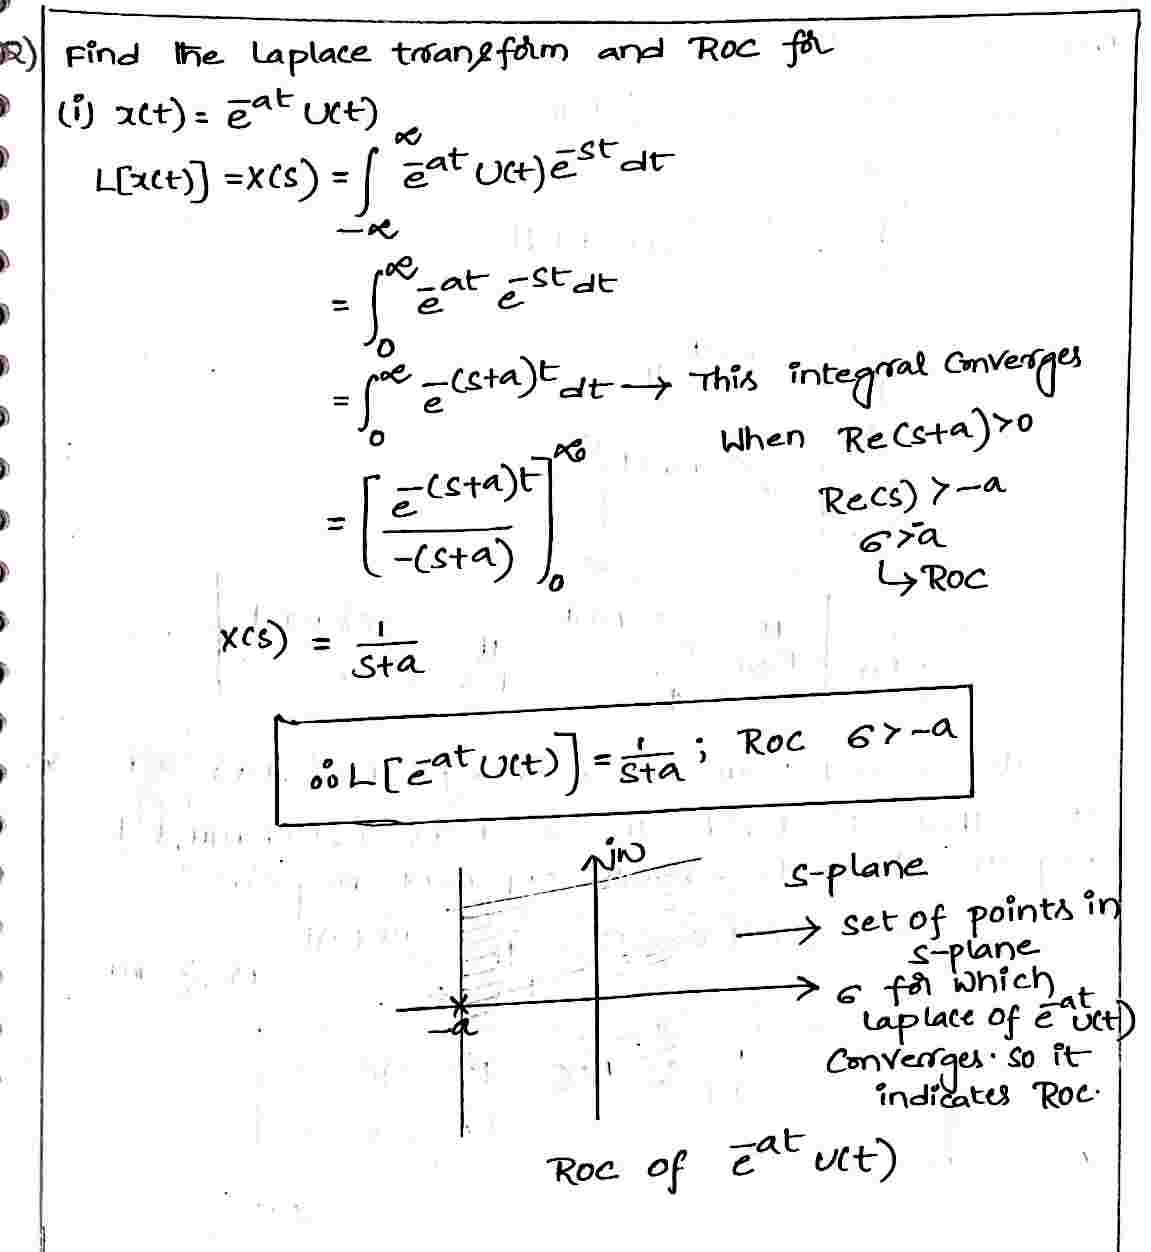 2) Find the Laplace transform and ROC for
(i) x(t) = e^-at U(t)
L[x(t)] = X(s) = ∫_-∞^∞ e^-at U(t) e^-st dt
= ∫_0^∞ e^-at e^-st dt
= ∫_0^∞ e^-(s+a)t dt → This integral converges
When Re(s+a)>0
= [e^-(s+a)t / -(s+a)]_0^∞
Re(s) > -a
σ>-a
↳ ROC
X(s) = 1/(s+a)
∴ L[e^-at U(t)] = 1/(s+a) ; ROC σ > -a
jω
s-plane
→ set of points in
s-plane
σ for which
-a
Laplace of e^-at U(t)
Converges. so it
indicates ROC.
ROC of e^-at U(t)